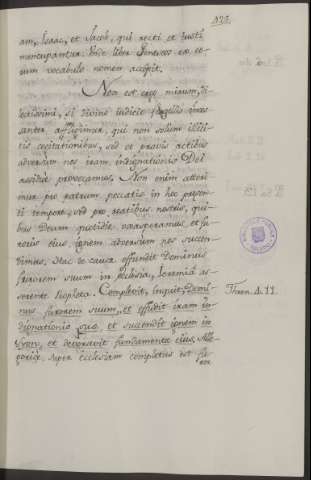 325.
am, Isaac, et Jacob, qui recti et justi
nuncupantur. Unde liber Geneseos ex eo-
rum vocabulo nomen accepit.
Non est ergo mirum, di-
lectissimi, si divino judicio flagellis inces-
santer affligimur, qui non solum illici-
tis cogitationibus, sed et pravis actibus
adversum nos iram, indignationis Dei
assidue provocamus. Non enim atteri-
mur pro patrum peccatis in hoc presen-
ti tempore, sed pro reatibus nostris, qui-
bus Deum quotidie exasperamus, et fu-
roris eius ignem adversum nos succen-
dimus. Hac de causa effundit Dominus
furorem suum in ecclesia, Jeremia as-
serente Propheta. Complevit, inquit, Domi-
nus furorem suum, et effudit iram in-
dignationis suæ, et succendit ignem in
Syon, et devoravit fundamenta eius. Alle-
gorice, super ecclesiam completus est fu-
ror
Thren. 4. 11.